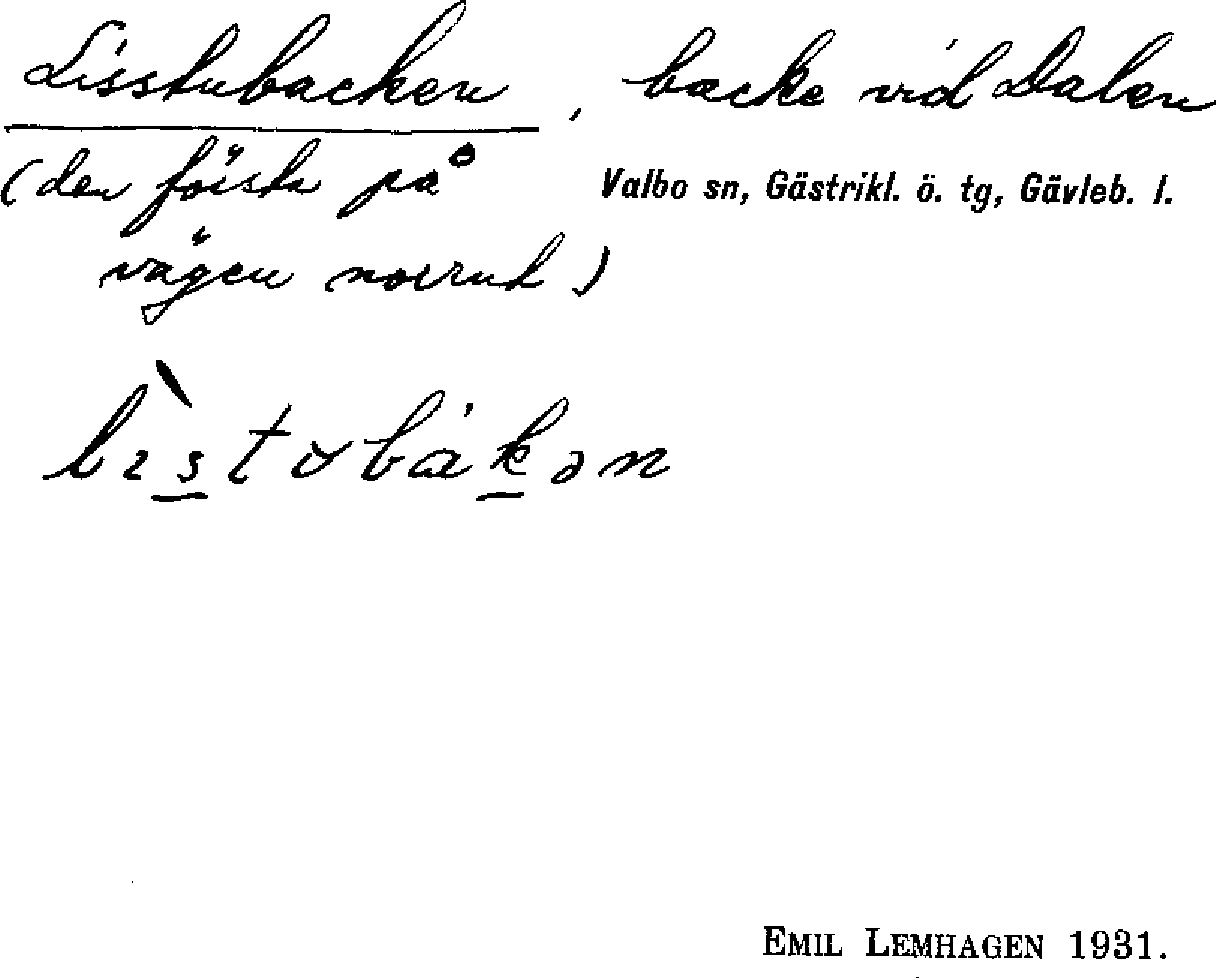 Lisstubacken, backe vid Dalen
(den första på
Valbo sn, Gästrikl. ö. tg, Gävleb. l.
vägen norrut)
lìstobákən
EMIL LEMHAGEN 1931.